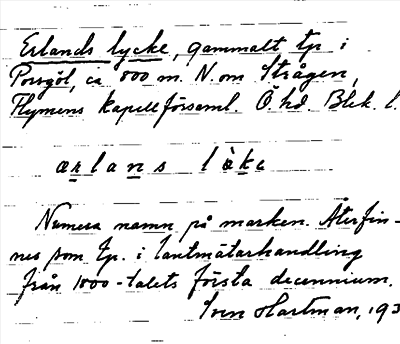 Erlands lycke, gammalt tp. i
Porsgöl, ca 800 m. N. om Strågen,
Flymens kapellförsaml. Ö. hd. Blek. l.
ærlans lòkə
Numera namn på marken. Återfin-
nes som tp. i lantmätarhandling
från 1800-talets första decennium.
Sven Hartman, 193